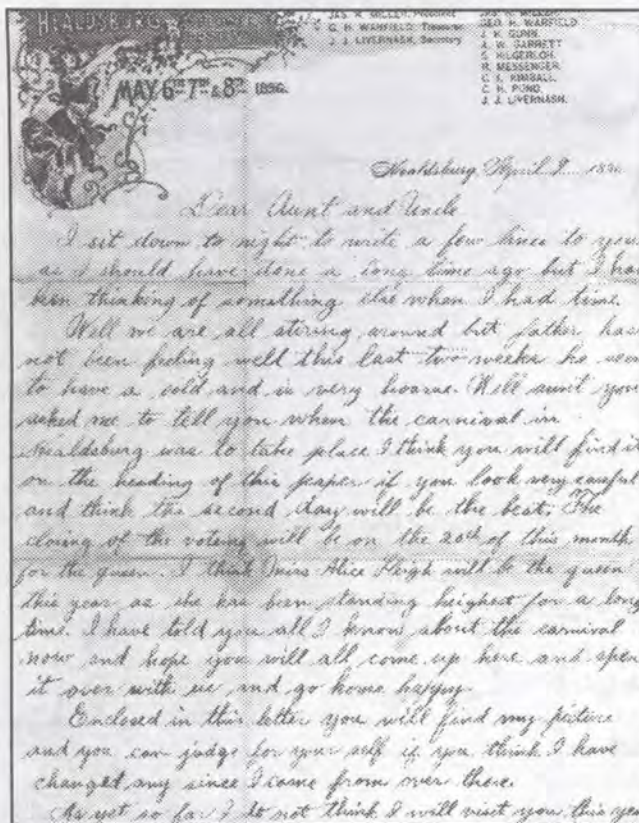 HEALDSBURG
MAY 6TH 7TH & 8TH 1896.
JAS. R. MILLER, President
G. H. WARFIELD, Treasurer
J. J. LIVERNASH, Secretary
GEO. H. WARFIELD
J. H. GUNN.
A. W. GARRETT
S. HILGERLOH.
R. MESSENGER.
C. E. KIMBALL.
C. H. POND.
J. J. LIVERNASH.
Healdsburg, April 9 1896
Dear Aunt and Uncle
I sit down to night to write a few lines to you
as I should have done a long time ago but I hav
ben thinking of something else when I had time.
Well we are all stiring around but father has
not been feeling well this last two weeks he seem
to have a cold and is very hoarse. Well aunt you
asked me to tell you when the carnival in
Healdsburg was to take place I think you will find it
on the heading of this paper if you look very carful
and think the second day will be the best. The
closing of the voteing will be on the 20th of this month
for the queen. I think Miss Alice Heigh will be the queen
this year as she has been standing heighest for a long
time. I have told you all I know about the carnival
now and hope you will all come up here and spen
it over with us and go home happy.
Enclosed in this letter you will find my picture
and you can judge for your self if you think I have
changet any since I come from over there.
As yet so far I do not think I will visit you this yea